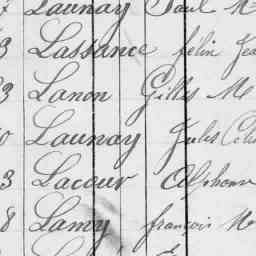 Launay Paul M
3 Lassance félix Jea
3 Lanon Gilles M
0 Launay Jules
3 Lacour Alphonse
8 Lamy françois M